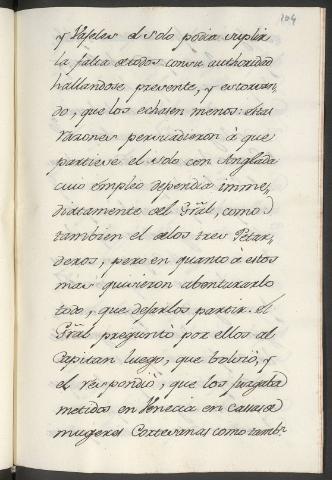 104
y Vafeles el solo podia suplir
la falta de todos con su authoridad
hallandose presente, y estorvan-
do, que los echasen menos: estas
razones persuadieron à que
partiese el solo con Anglada
cuio empleo dependia imme-
diattamente del Grãl, como
tambien el de los tres Petar-
deros, pero en quanto à estos
mas quisieron abenturarlo
todo, que dejarlos partir. el
Grãl preguntò por ellos al
Capitan luego, que bolviò, y
el respondiò, que los juzgaba
metidos en Venecia en casas de
mugeres Cortesanas como tambn